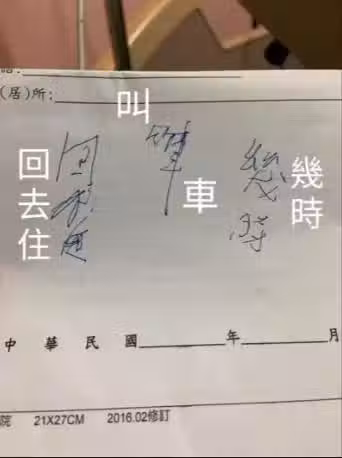 話:
(居)所:
叫車
回去住
幾時
幾時
中華民國 年 月
院 21X27CM 2016.02修訂